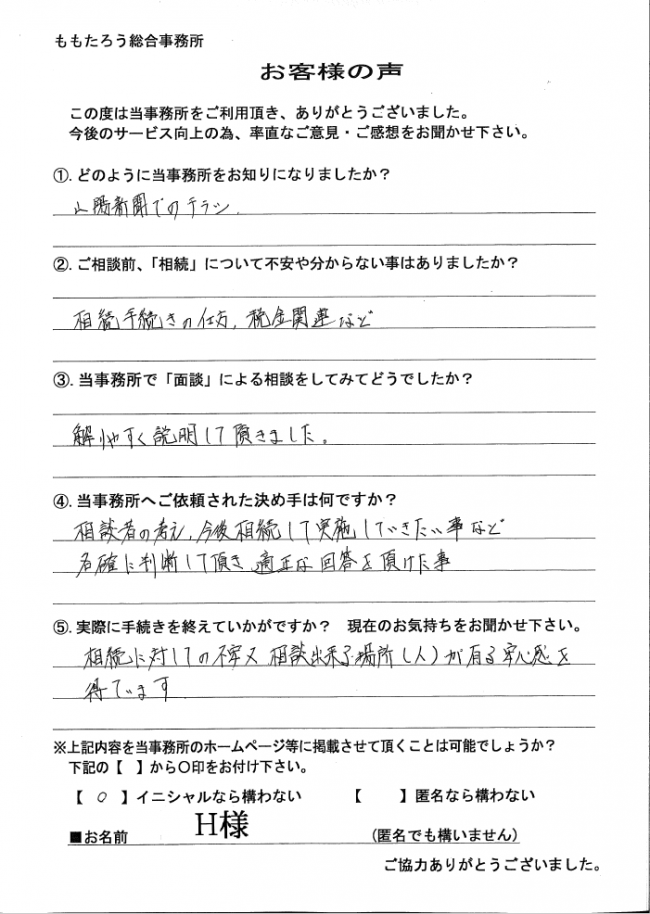 ももたろう総合事務所
お客様の声
この度は当事務所をご利用頂き、ありがとうございました。
今後のサービス向上の為、率直なご意見・ご感想をお聞かせ下さい。
①. どのように当事務所をお知りになりましたか？
山陽新聞でのチラシ.
②. ご相談前、「相続」について不安や分からない事はありましたか？
相続手続きの仕方, 税金関連など
③. 当事務所で「面談」による相談をしてみてどうでしたか？
解りやすく説明して頂きました。
④. 当事務所へご依頼された決め手は何ですか？
相談者の考え, 今後相続して実施していきたい事など
名確に判断して頂き 適正な回答を頂けた事
⑤. 実際に手続きを終えていかがですか？　現在のお気持ちをお聞かせ下さい。
相続に対しての不安又 相談出来る場所(人)が有る安心感を
得ています
※上記内容を当事務所のホームページ等に掲載させて頂くことは可能でしょうか？
下記の【　】から〇印をお付け下さい。
【 ○ 】イニシャルなら構わない　【　　】匿名なら構わない
■お名前　H様　(匿名でも構いません)
ご協力ありがとうございました。